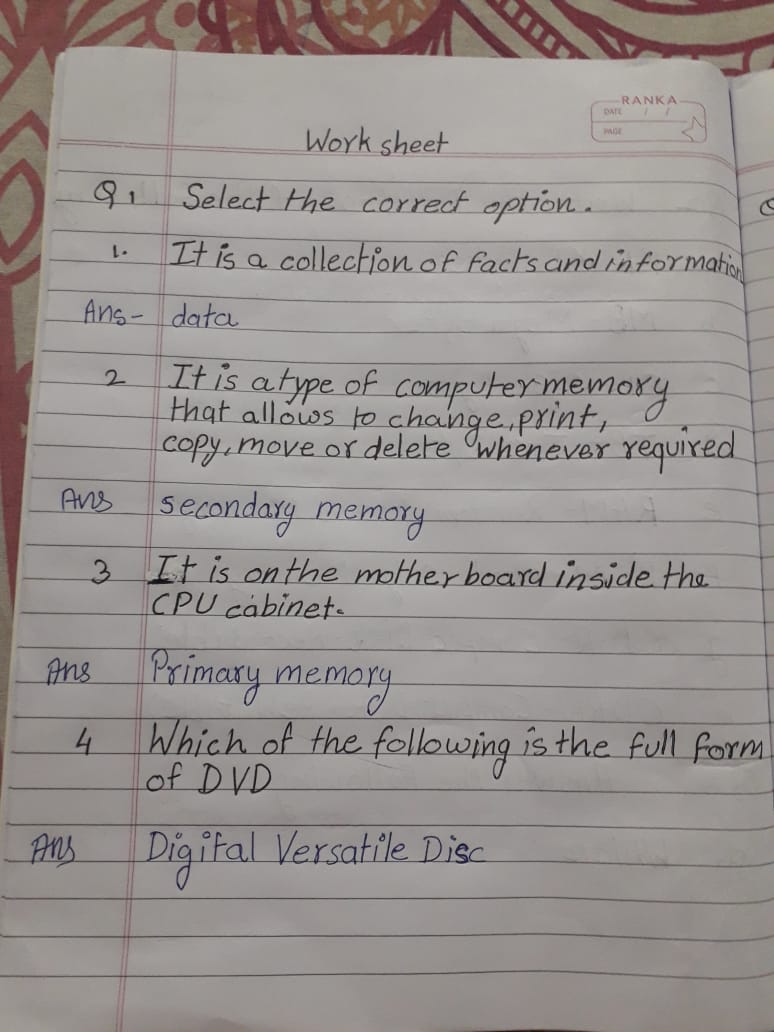 RANKA
DATE / /
PAGE
Work sheet
Q 1 Select the correct option.
1. It is a collection of facts and information
Ans- data
2 It is a type of computer memory
that allows to change, print,
copy, move or delete whenever required
Ans secondary memory
3 It is on the mother board inside the
CPU cabinet.
Ans Primary memory
4 Which of the following is the full form
of DVD
Ans Digital Versatile Disc